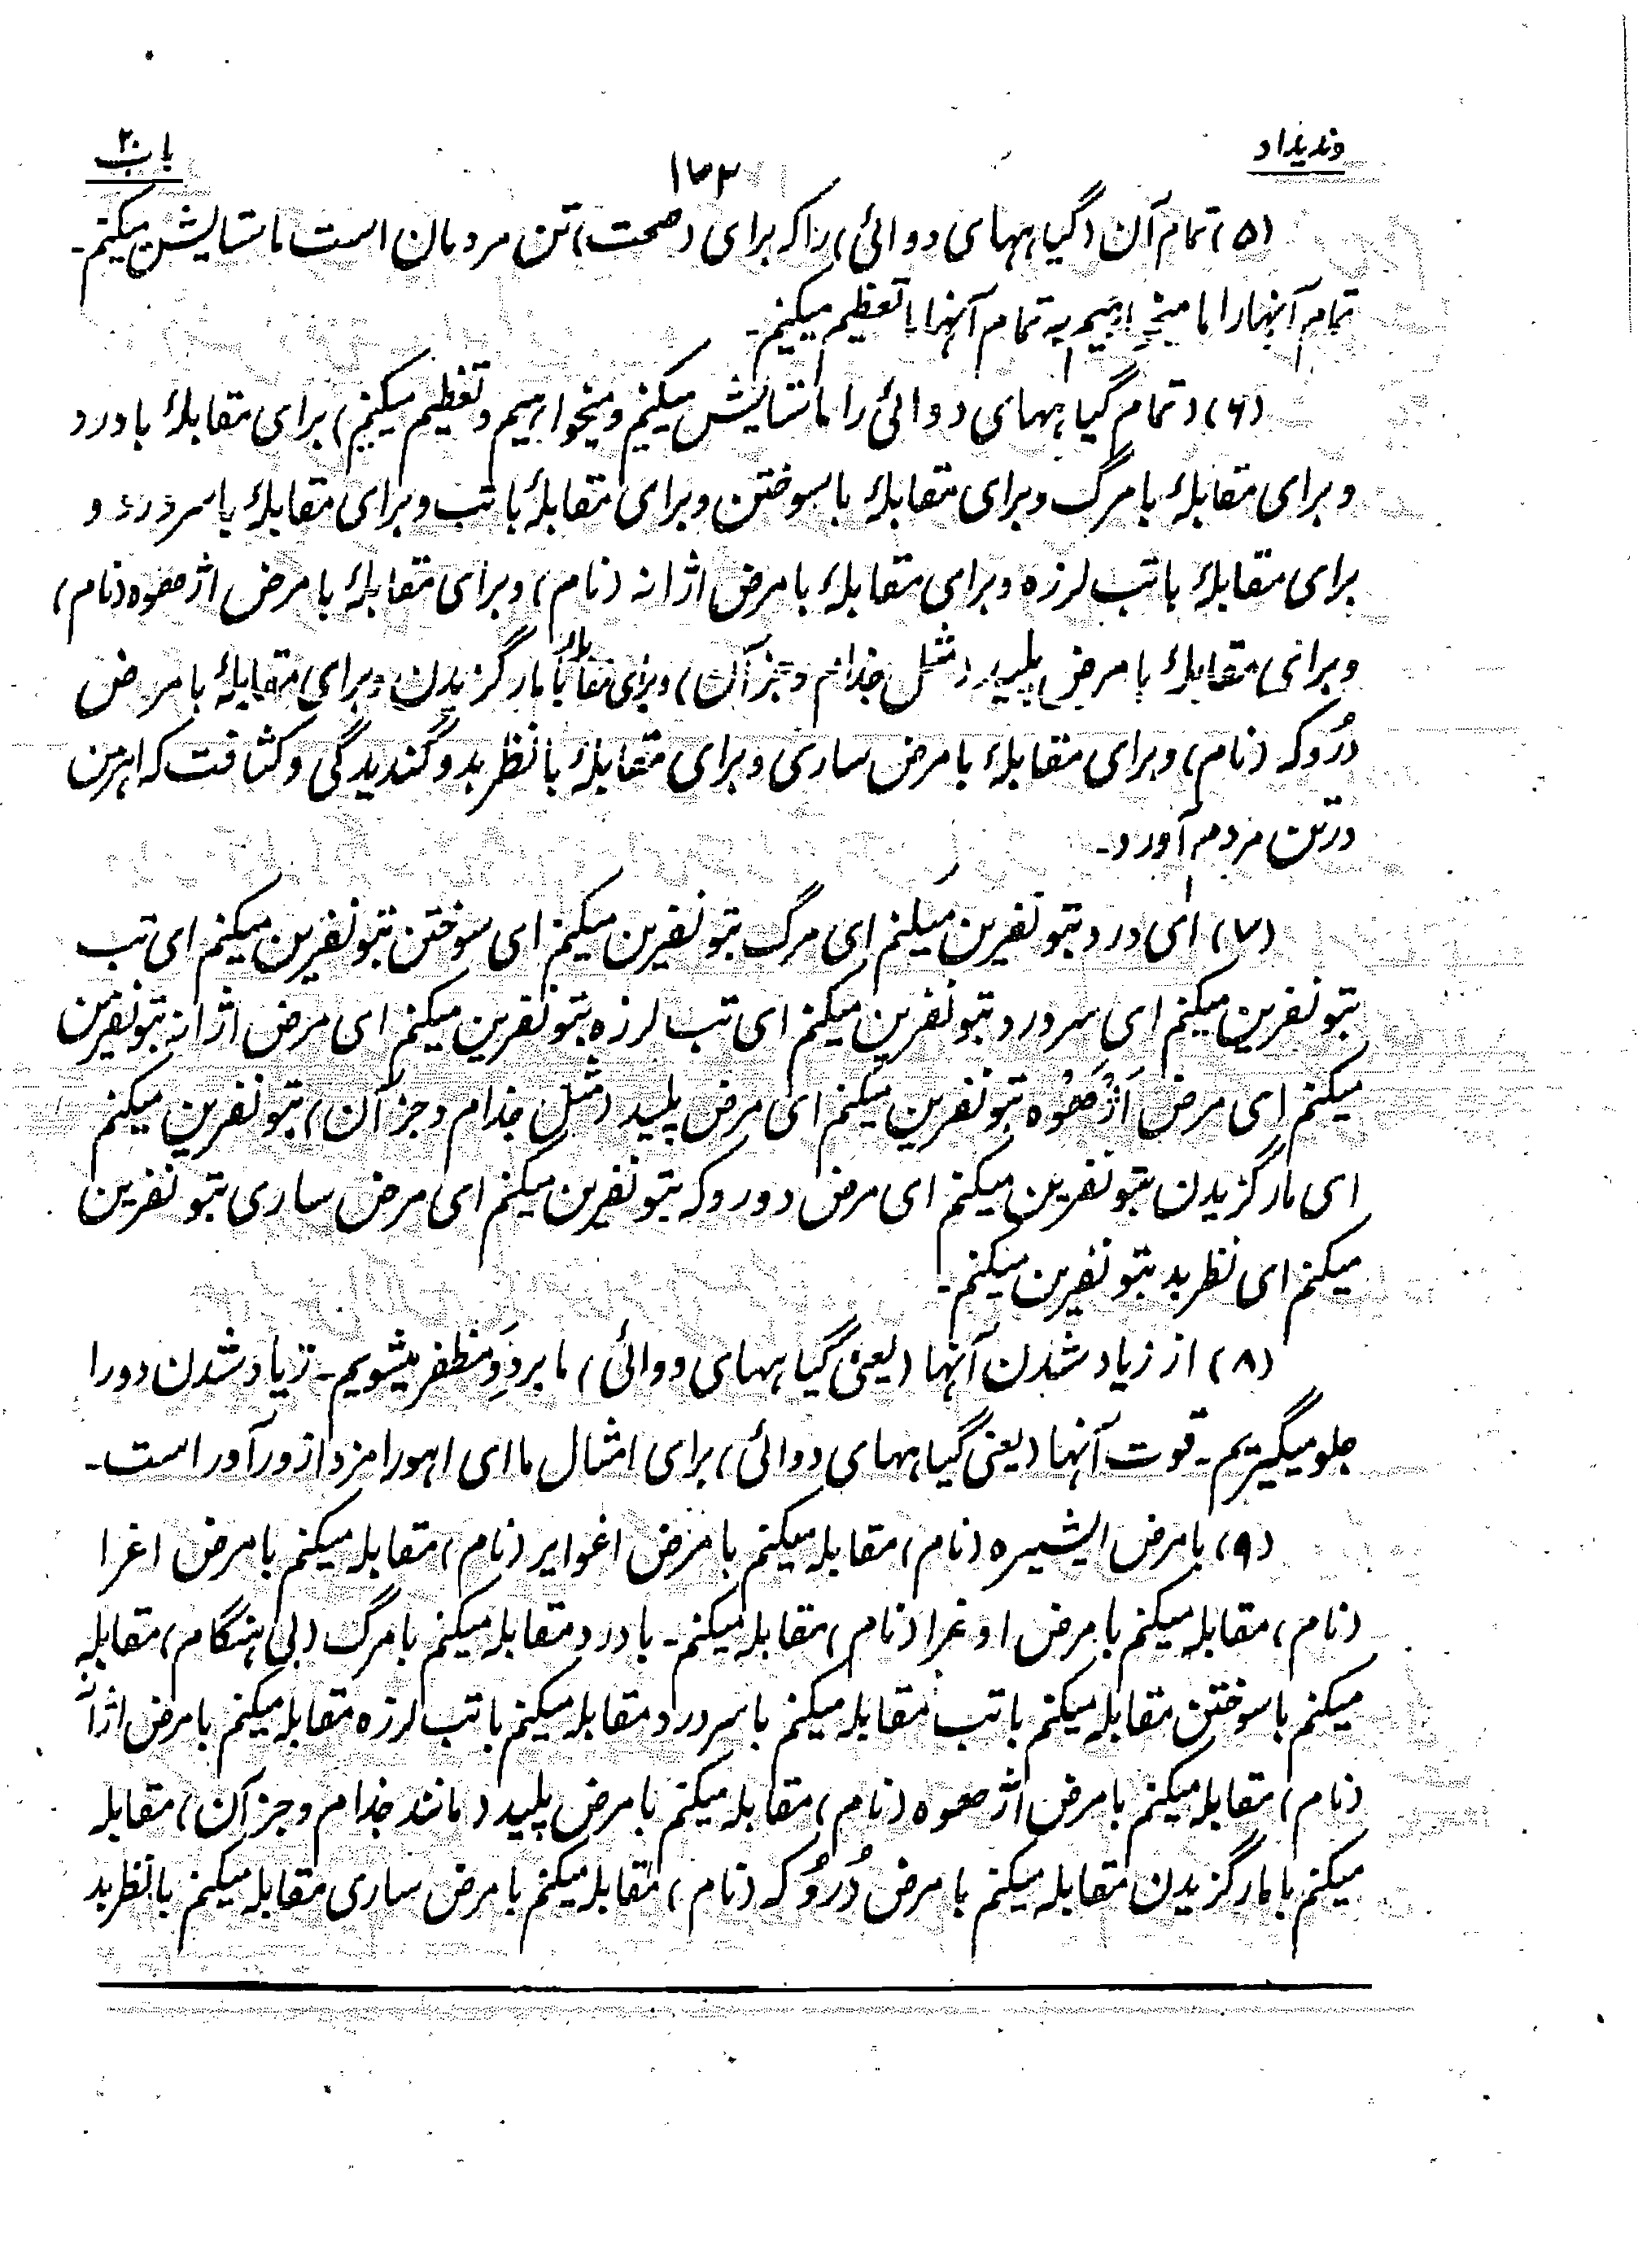 وندیداد
۱۷۳
باب ۲۰
(۵) تمام آن (گیاههای دوائی) را که برای (صحت) تن مردمان است ما ستایش میکنیم۔
تمام آنها را ما میخواهیم به تمام آنها ما تعظیم میکنیم۔
(۶) (تمام گیاههای دوائی را ما ستایش میکنیم و میخواهیم و تعظیم میکنیم) برای مقابلهٔ با درد
و برای مقابلهٔ با مرگ و برای مقابلهٔ با سوختن و برای مقابلهٔ با تب و برای مقابلهٔ با سردرد و
برای مقابلهٔ با تب لرزه و برای مقابلهٔ با مرض اژانه (نام) و برای مقابلهٔ با مرض اژهوه (نام)
و برای مقابلهٔ با مرض پلید (مثل جذام و جز آن) و برای مقابلهٔ با مار گزیدن و برای مقابلهٔ با مرض
دُروکه (نام) و برای مقابلهٔ با مرض ساری و برای مقابلهٔ با نظر بد و گندیدگی و کثافت که اهرمن
در تن مردم آورد۔
(۷) ای درد بتو نفرین میکنم ای مرگ بتو نفرین میکنم ای سوختن بتو نفرین میکنم ای تب
بتو نفرین میکنم ای سردرد بتو نفرین میکنم ای تب لرزه بتو نفرین میکنم ای مرض اژانه بتو نفرین
میکنم ای مرض اَژَهْوه بتو نفرین میکنم ای مرض پلید (مثل جذام و جز آن) بتو نفرین میکنم
ای مار گزیدن بتو نفرین میکنم ای مرض دوروکه بتو نفرین میکنم ای مرض ساری بتو نفرین
میکنم ای نظر بد بتو نفرین میکنم۔
(۸) از زیاد شدن آنها (یعنی گیاههای دوائی) ما بر دِوَ مظفر میشویم۔ زیاد شدن دورا
جلو میگیریم۔ قوت آنها (یعنی گیاههای دوائی) برای امثال ما ای اهورامزدا زورآور است۔
(۹) با مرض ایشیره (نام) مقابله میکنم با مرض اغوایر (نام) مقابله میکنم با مرض اغرا
(نام) مقابله میکنم با مرض اوغرا (نام) مقابله میکنم۔ با درد مقابله میکنم با مرگ (بی هنگام) مقابله
میکنم با سوختن مقابله میکنم با تب مقابله میکنم با سردرد مقابله میکنم با تب لرزه مقابله میکنم با مرض اژانه
(نام) مقابله میکنم با مرض اژهوه (نام) مقابله میکنم با مرض پلید (مانند جذام و جز آن) مقابله
میکنم با مار گزیدن مقابله میکنم با مرض دُروُکه (نام) مقابله میکنم با مرض ساری مقابله میکنم با نظر بد